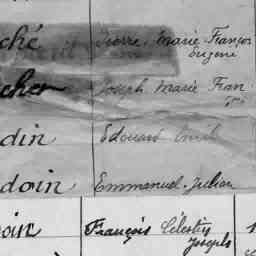 ché Pierre Marie François
Eugène
cher Joseph Marie Fran
çois
din Edouard Emile
doin Emmanuel Julien
oin François Célestin
Joseph